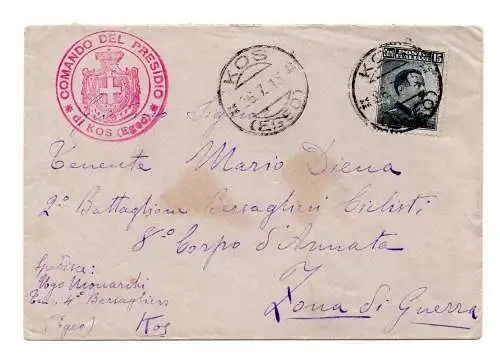 COMANDO DEL PRESIDIO
di KOS (Egeo)
KOS
(EGEO)
KOS
15
POSTE
ITALIANE
Signor
Tenente Mario Diena
2º Battaglione Bersaglieri Ciclisti
8º Corpo d'Armata
Zona di Guerra
Ugo
4º Bersaglieri
(Egeo) Kos